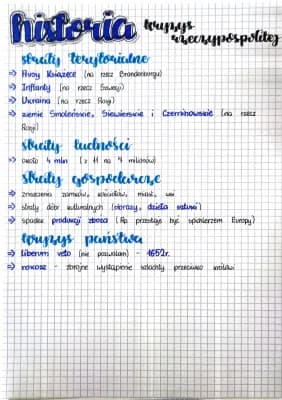 historia kryzys
rzeczypospolitej
straty terytorialne
⇒ Prusy Książęce (na rzecz Brandenburgii)
⇒ Inflanty (na rzecz Szwecji)
⇒ Ukraina (na rzecz Rosji)
⇒ ziemie Smoleńskie, Siewierskie i Czernihowskie (na rzecz
Rosji)
straty ludności
⇒ około 4 mln (z 11 na 7 milionów)
straty gospodarcze
⇒ zniszczenia zamków, kościołów, miast, wsi
⇒ straty dóbr kulturalnych (obrazy, dzieła sztuki)
⇒ spadek produkcji zboża (Rp przestaje być spichlerzem Europy)
kryzys państwa
⇒ liberum veto (nie pozwalam) - 1652r.
⇒ rokosz - zbrojne wystąpienie szlachty przeciwko królowi